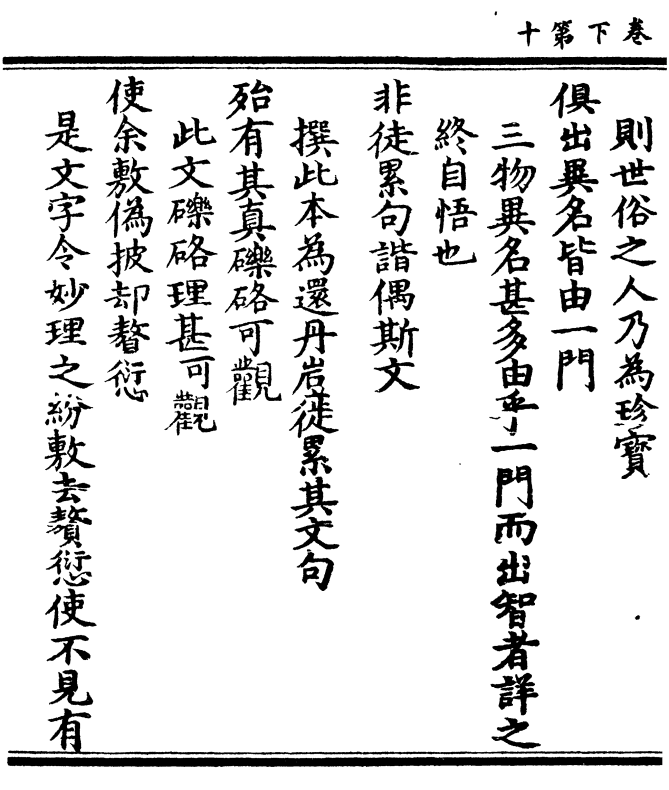 卷下第十
則世俗之人乃為珍寶
俱出異名皆由一門
三物異名甚多由乎一門而出智者詳之
終自悟也
非徒累句諧偶斯文
撰此本為還丹岩蓰累其文句
殆有其真礫硌可觀
此文礫硌理甚可觀
使余敷偽披却贅愆
是文字令妙理之紛敷去贅愆使不見有